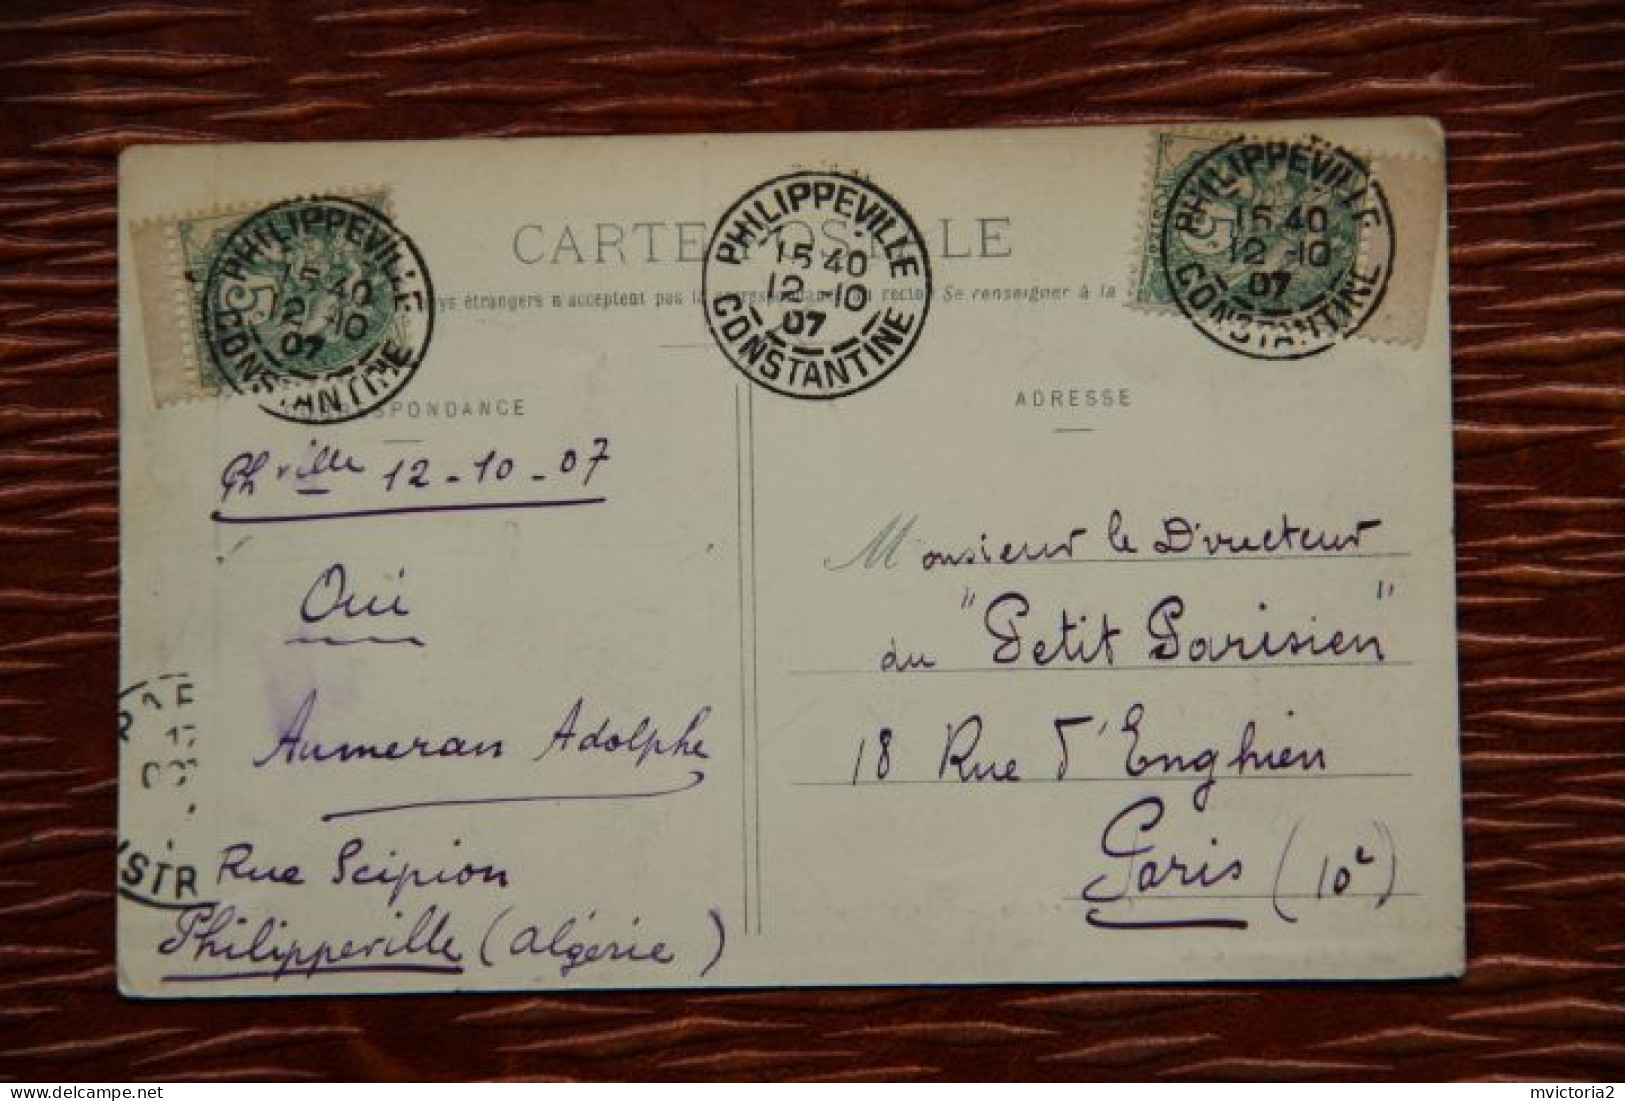 CARTE POSTALE
ys étrangers n'acceptent pas la correspondance au recto. Se renseigner à la
PHILIPPEVILLE
15 40
12 -10
07
CONSTANTINE
PHILIPPEVILLE
15 40
12 -10
07
CONSTANTINE
PHILIPPEVILLE
15 40
12 -10
07
CONSTANTINE
5
5
CORRESPONDANCE
Phville 12-10-07
Oui
Aumeran Adolphe
Rue Scipion
Philippeville (Algérie)
STR
ADRESSE
Monsieur le Directeur
du "Petit Parisien"
18 Rue d'Enghien
Paris (10e)
mvictoria2